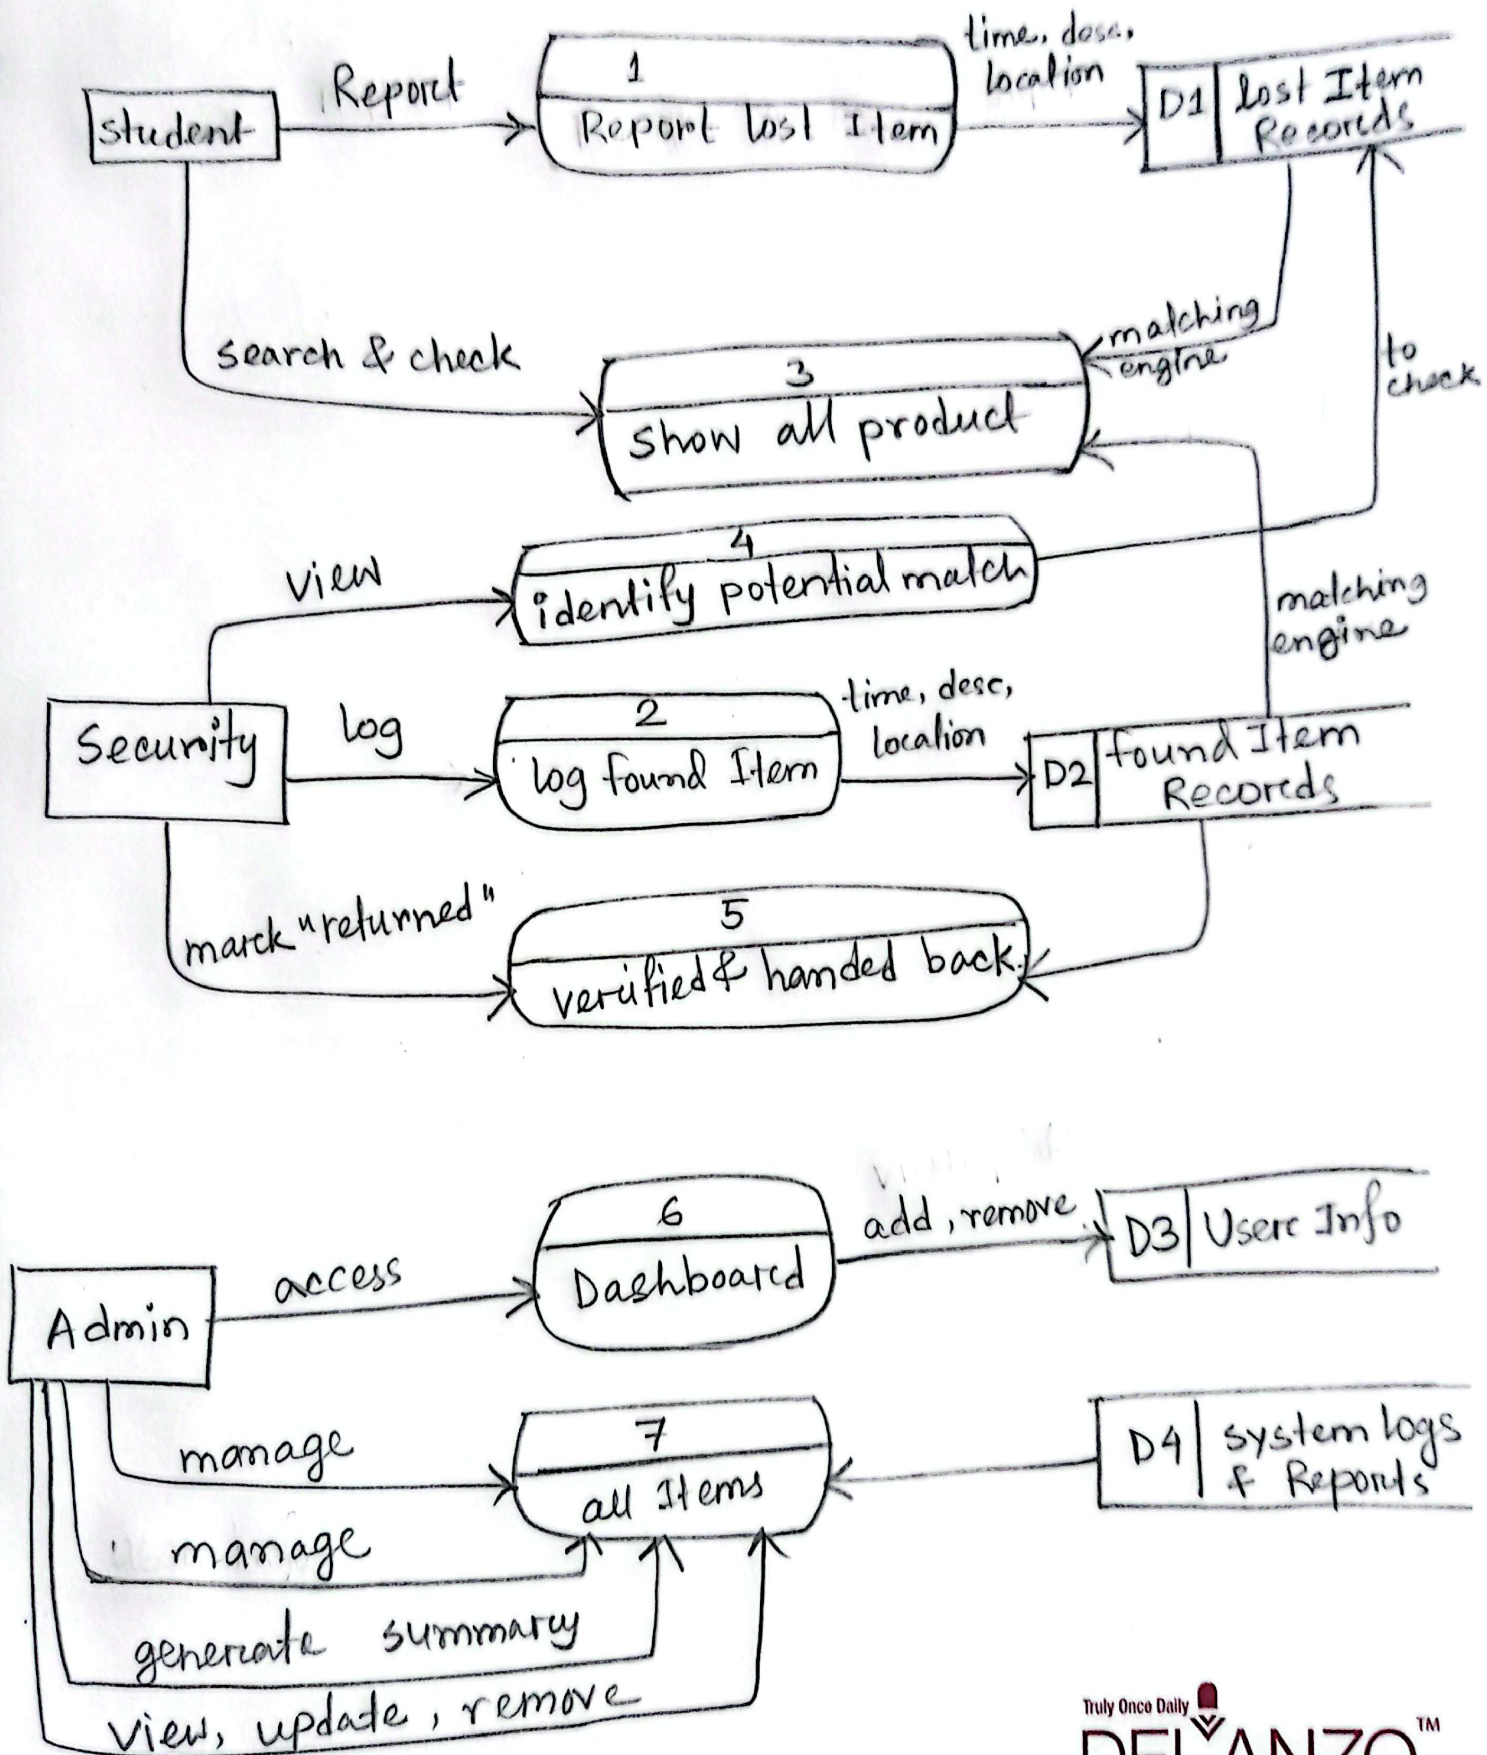 student
Report
1
Report lost Item
time, desc,
location
D1
lost Item
Records
search & check
3
show all product
matching
engine
to
check
view
4
identify potential match
matching
engine
Security
Log
2
log found Item
time, desc,
location
D2
found Item
Records
mark "returned"
5
verified & handed back
Admin
access
6
Dashboard
add, remove
D3
User Info
manage
7
all Items
D4
system logs
& Reports
manage
generate summary
view, update, remove
Truly Once Daily
DELANZO™